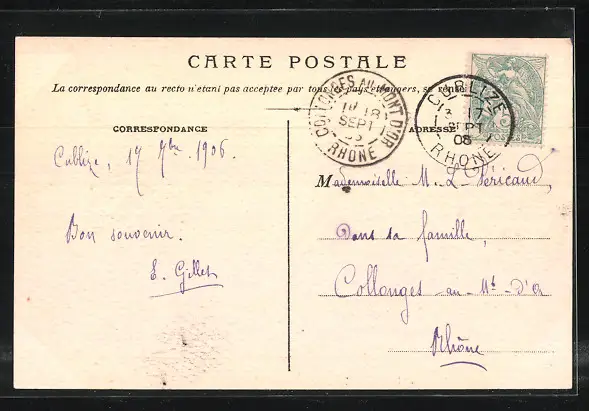 CARTE POSTALE
La correspondance au recto n'étant pas acceptee par tous les pays étrangers, se rense
CORRESPONDANCE
ADRESSE
COLLONGES AU MONT D'OR
18
SEPT
RHÔNE
CUBLIZE
17
SEPT
06
RHÔNE
Cublize, 17 7bre 1906.
Bon souvenir.
E. Gillet
Mademoiselle M. L. Péricaud,
Dans sa famille,
Collonges au Mt d'Or
Rhône